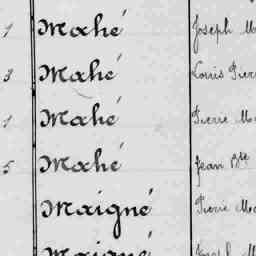 1 Mahé Joseph M
3 Mahé Louis Pier
1 Mahé Pierre Ma
5 Mahé Jean Bte
Maigné Pierre Ma
Maigné Joseph M